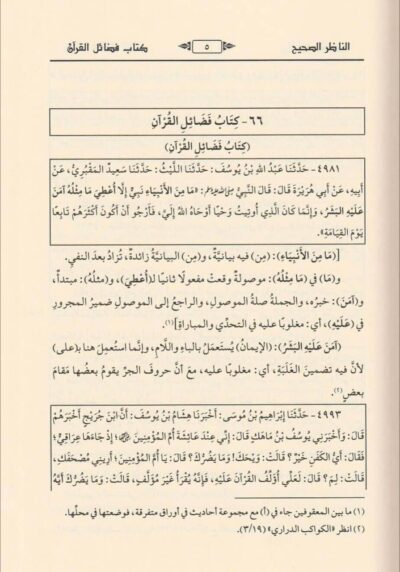 الناظر الصحيح
٥
كتاب فضائل القرآن
٦٦- كِتَابُ فَضَائِلِ القُرْآنِ
(كِتَابُ فَضَائِلِ القُرْآنِ)
٤٩٨١- حَدَّثَنَا عَبْدُ اللهِ بْنُ يُوسُفَ: حَدَّثَنَا اللَّيْثُ: حَدَّثَنَا سَعِيدٌ المَقْبُرِيُّ، عَنْ
أَبِيهِ، عَنْ أَبِي هُرَيْرَةَ قَالَ: قَالَ النَّبِيُّ صلى الله عليه وسلم: «مَا مِنَ الأَنْبِيَاءِ نَبِيٌّ إِلَّا أُعْطِيَ مَا مِثْلُهُ آمَنَ
عَلَيْهِ البَشَرُ، وَإِنَّمَا كَانَ الَّذِي أُوتِيتُ وَحْيًا أَوْحَاهُ اللهُ إِلَيَّ، فَأَرْجُو أَنْ أَكُونَ أَكْثَرَهُمْ تَابِعًا
يَوْمَ القِيَامَةِ».
(مَا مِنَ الأَنْبِيَاءِ): (مِن) فيه بيانيَّةٌ، و(مِن) البيانيَّةُ زائدةٌ، تُزادُ بعدَ النفيِ.
و(مَا) في (مَا مِثْلُهُ): موصولةٌ وقعتْ مفعولًا ثانيًا لـ(أُعْطِيَ)، و(مثلُه): مبتدأٌ،
و(آمَنَ): خبرُه، والجملةُ صلةُ الموصولِ، والراجعُ إلى الموصولِ ضميرُ المجرورِ
في (عَلَيْهِ)، أي: مغلوبًا عليه في التحدِّي والمباراةِ](١).
(آمَنَ عَلَيْهِ البَشَرُ): (الإيمانُ) يُستعمَلُ بالباءِ واللَّامِ، وإنَّما استُعمِلَ هنا بـ(على)
لأنَّ فيه تضمينَ الغَلَبَةِ، أي: مغلوبًا عليه، مع أنَّ حروفَ الجرِّ يقومُ بعضُها مَقامَ
بعضٍ(٢).
٤٩٩٣- حَدَّثَنَا إِبْرَاهِيمُ بْنُ مُوسَى: أَخْبَرَنَا هِشَامُ بْنُ يُوسُفَ: أَنَّ ابْنَ جُرَيْجٍ أَخْبَرَهُمْ
قَالَ: وَأَخْبَرَنِي يُوسُفُ بْنُ مَاهَكَ قَالَ: إِنِّي عِنْدَ عَائِشَةَ أُمِّ المُؤْمِنِينَ؛ إِذْ جَاءَهَا عِرَاقِيٌّ؛
فَقَالَ: أَيُّ الكَفَنِ خَيْرٌ؟ قَالَتْ: وَيْحَكَ! وَمَا يَضُرُّكَ؟ قَالَ: يَا أُمَّ المُؤْمِنِينَ؛ أَرِينِي مُصْحَفَكِ،
قَالَتْ: لِمَ؟ قَالَ: لَعَلِّي أُؤَلِّفُ القُرْآنَ عَلَيْهِ، فَإِنَّهُ يُقْرَأُ غَيْرَ مُؤَلَّفٍ، قَالَتْ: وَمَا يَضُرُّكَ أَيَّهُ
(١) ما بين المعقوفين جاء في (أ) مع مجموعة أحاديث في أوراق متفرقة، فوضعتها في محلِّها.
(٢) انظر «الكواكب الدراري» (٣/١٩).